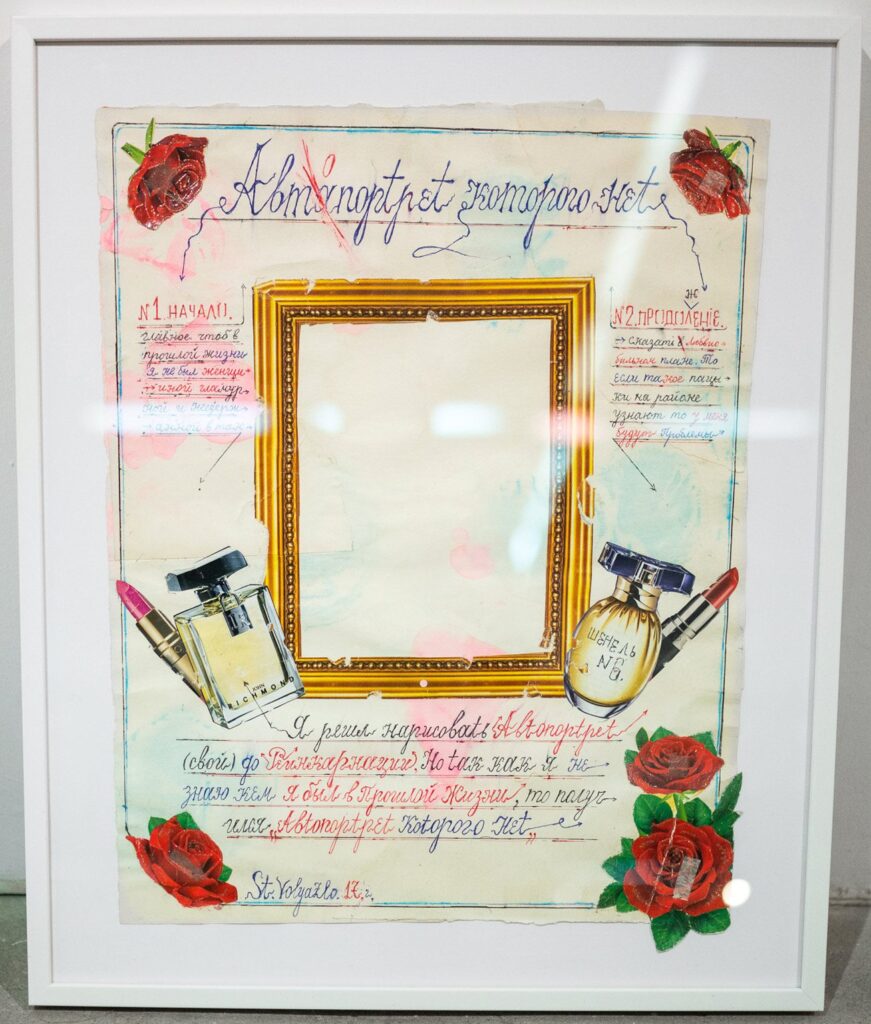 о
Автапортрет которого Нет
№1. НАЧАЛО.
главное чтоб в
прошлой жизни
я не был женщи
иной гламур
ной и
в так
Ж
№2. ПРОДОЛЕНІЕ.
сказаті в любвио
бильном плане. То
если такое пацы
ки на районе
узнают то у меня
будут Проблемы
JOHN
RICHMOND
ШЕНЕЛЬ
№8.
Я решл нарисовать Автопортрет
(свой) до "Реинкарнации). Но так как я не
знаю кем я был в Прошлой Жизни, то получ
илья „Автопортрет Которого Нет„
St. Volyazlo. 17.г.